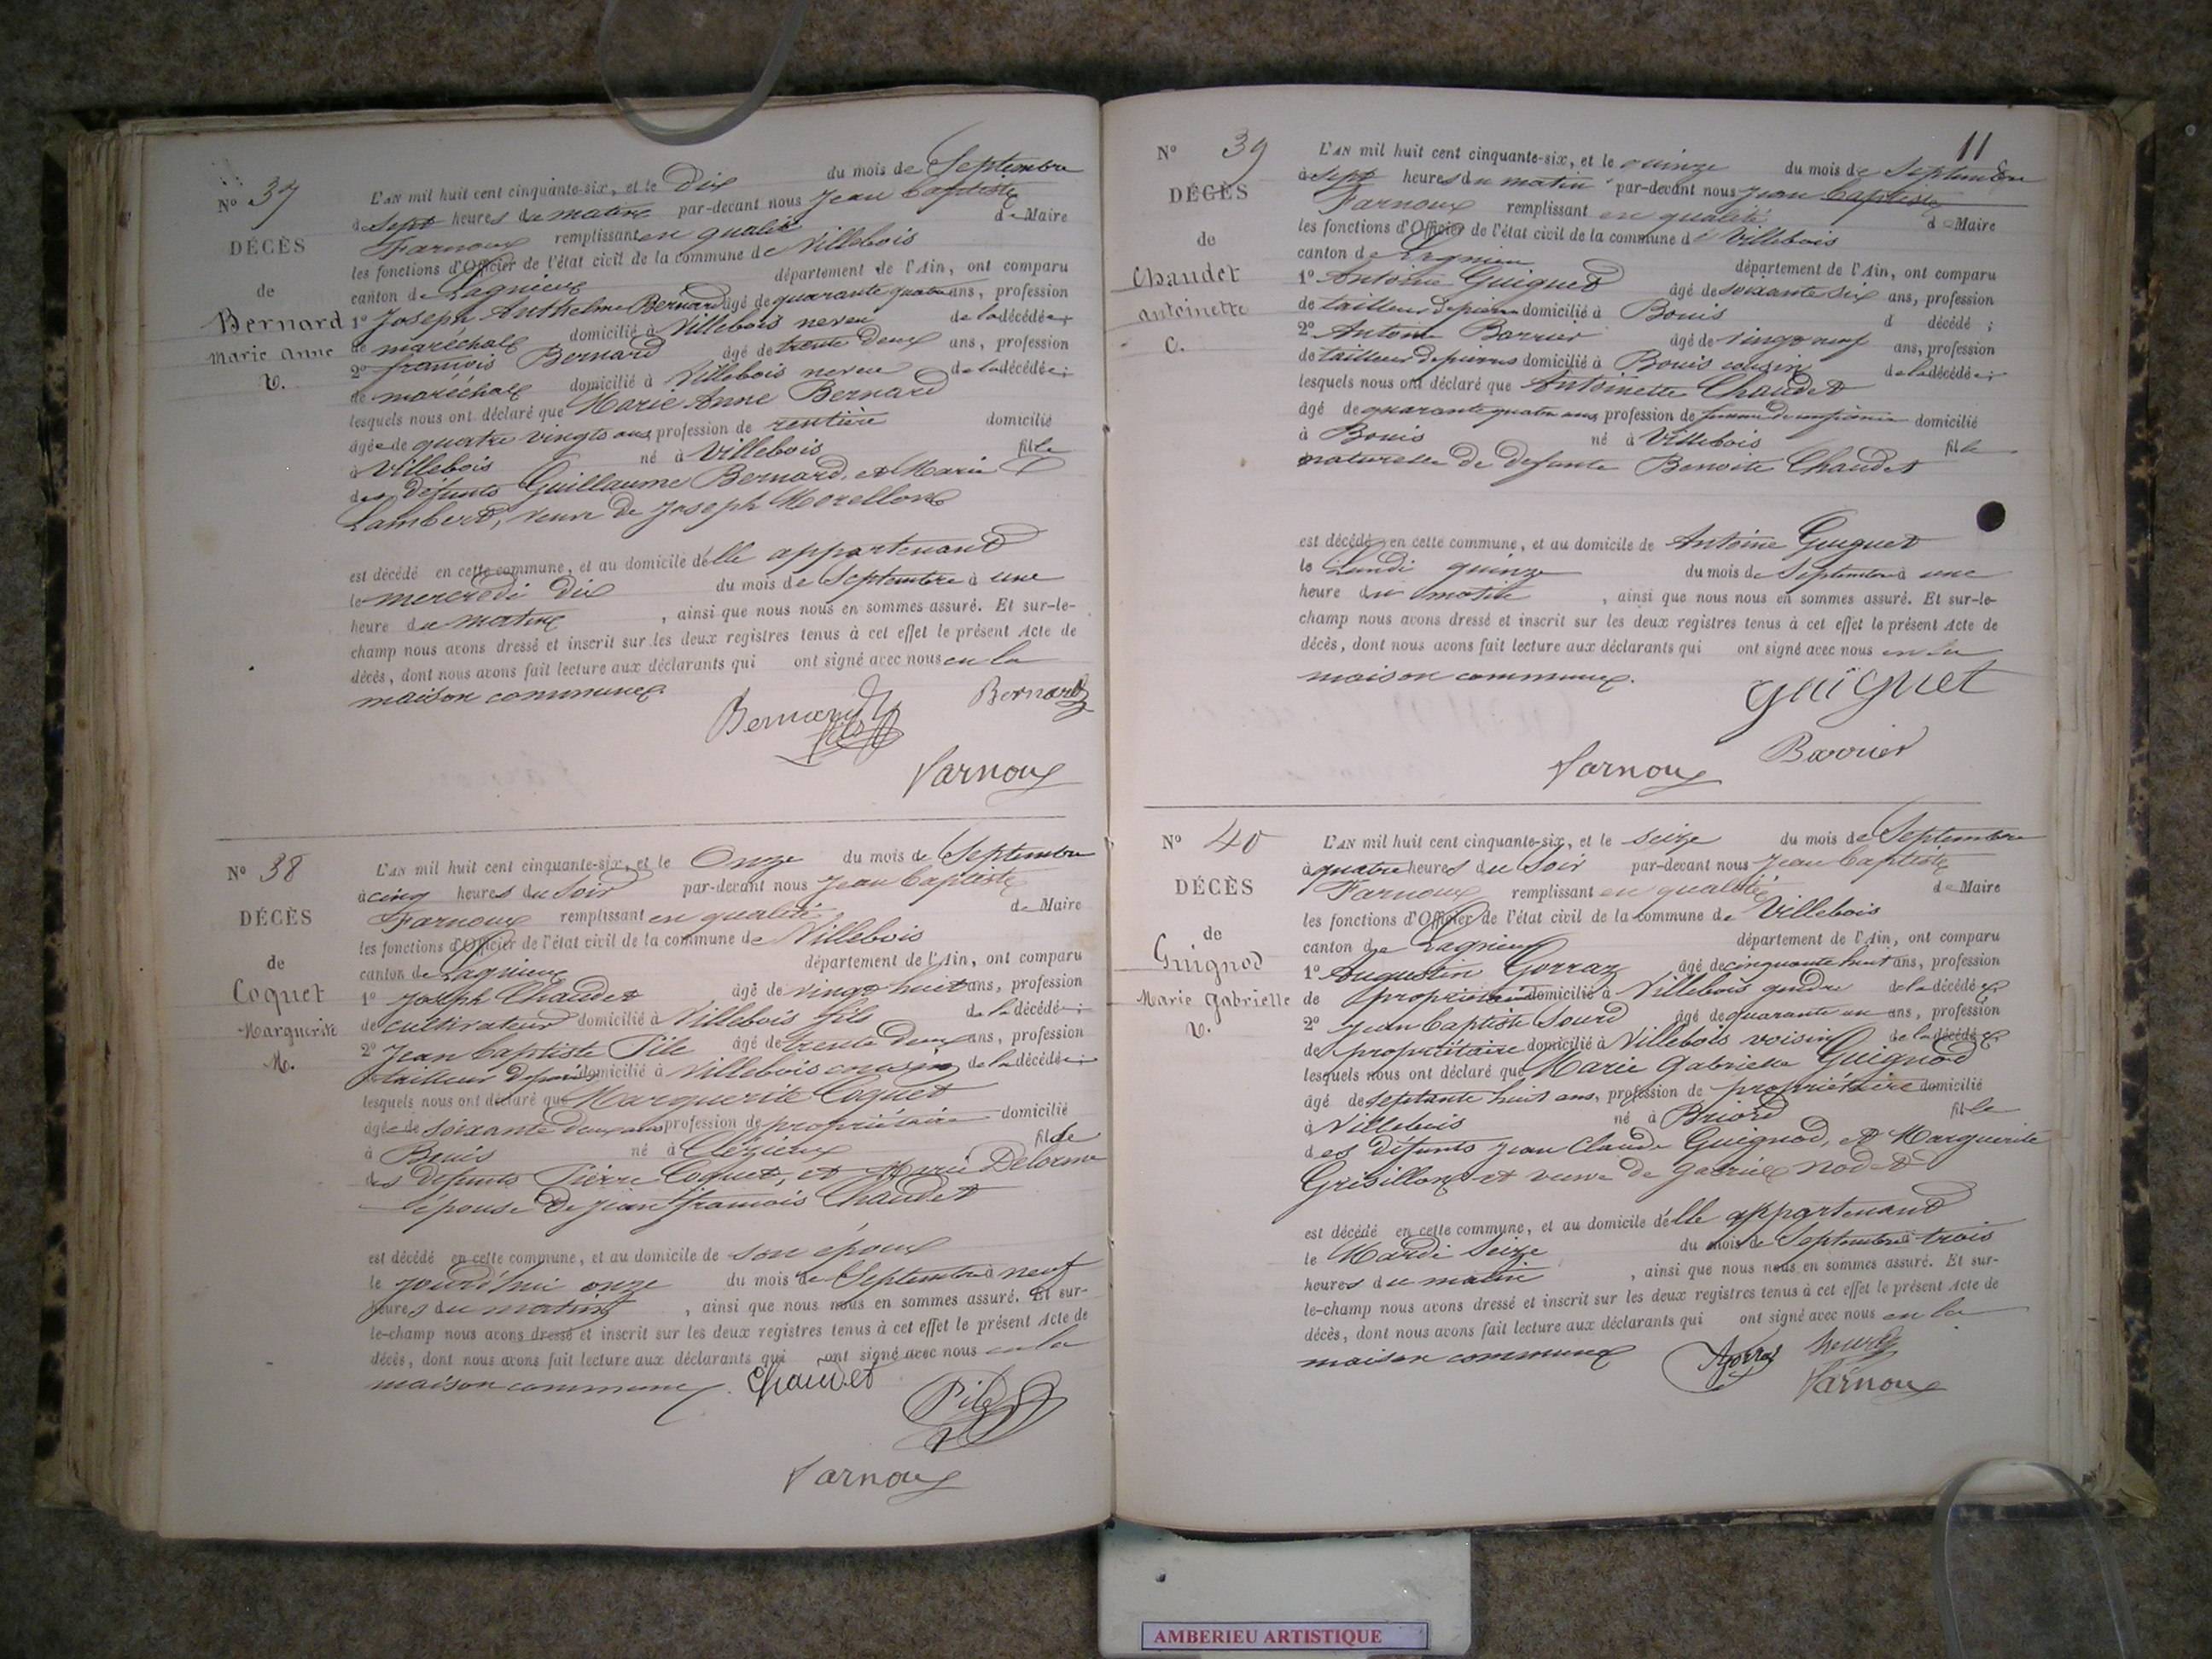 N° 37
DÉCÈS
de
Bernard
Marie Anne
V.
L'AN mil huit cent cinquante-six, et le Dix du mois de Septembre
à Sept heures du matin par-devant nous Jean Baptiste
Farnoux remplissant en qualité de Maire
les fonctions d'Officier de l'état civil de la commune de Villebois
canton de Lagnieux département de l'Ain, ont comparu
1° Joseph Anthelme Bernard âgé de quarante quatre ans, profession
de maréchal domicilié à Villebois neveu de la décédée;
2° françois Bernard âgé de trente Deux ans, profession
de maréchal domicilié à Villebois neveu de la décédée;
lesquels nous ont déclaré que Marie Anne Bernard
âgée de quatre vingts ans, profession de rentière domicilié
à Villebois né à Villebois fille
des défunts Guillaume Bernard, et Marie
Lambert, veuve de Joseph Morellon
est décédé en cette commune, et au domicile d'elle appartenant
le mercredi dix du mois de Septembre à une
heure du matin, ainsi que nous nous en sommes assuré. Et sur-le-
champ nous avons dressé et inscrit sur les deux registres tenus à cet effet le présent Acte de
décès, dont nous avons fait lecture aux déclarants qui ont signé avec nous en la
maison commune.
Bernard fils Bernard
Farnoux
N° 38
DÉCÈS
de
Coquet
Marguerite
M.
L'AN mil huit cent cinquante-six, et le Onze du mois de Septembre
à cinq heures du Soir par-devant nous Jean Baptiste
Farnoux remplissant en qualité de Maire
les fonctions d'Officier de l'état civil de la commune de Villebois
canton de Lagnieux département de l'Ain, ont comparu
1° Joseph Chaudet âgé de vingt huit ans, profession
de cultivateur domicilié à Villebois fils de la décédée;
2° Jean Baptiste Pile âgé de trente Deux ans, profession
tailleur de pierres domicilié à Villebois cousin de la décédée;
lesquels nous ont déclaré que Marguerite Coquet
âgée de soixante deux ans profession de propriétaire domicilié
à Bouis né à Clézieux fille
des défunts Pierre Coquet, et Marie Delorme
épouse de Jean françois Chaudet
est décédé en cette commune, et au domicile de son époux
le jourd'hui onze du mois de Septembre à neuf
heures du matin, ainsi que nous nous en sommes assuré. Et sur-
le-champ nous avons dressé et inscrit sur les deux registres tenus à cet effet le présent Acte de
décès, dont nous avons fait lecture aux déclarants qui ont signé avec nous en la
maison commune. Chaudet
Pile
Farnoux
11
N° 39
DÉCÈS
de
Chaudet
antoinette
C.
L'AN mil huit cent cinquante-six, et le quinze du mois de Septembre
à Sept heures du matin par-devant nous Jean Baptiste
Farnoux remplissant en qualité de Maire
les fonctions d'Officier de l'état civil de la commune de Villebois
canton de Lagnieu département de l'Ain, ont comparu
1° Antoine Guiguet âgé de soixante six ans, profession
de tailleur de pierre domicilié à Bouis d décédé ;
2° Antoine Barrier âgé de vingt neuf ans, profession
de tailleur de pierres domicilié à Bouis cousin de la décédée;
lesquels nous ont déclaré que Antoinette Chaudet
âgé de quarante quatre ans, profession de femme de confiance domicilié
à Bouis né à Villebois fille
naturelle de défunte Benoite Chaudet
est décédé en cette commune, et au domicile de Antoine Guiguet
le Lundi quinze du mois de Septembre à une
heure du matin, ainsi que nous nous en sommes assuré. Et sur-le-
champ nous avons dressé et inscrit sur les deux registres tenus à cet effet le présent Acte de
décès, dont nous avons fait lecture aux déclarants qui ont signé avec nous en la
maison commune.
guiguet
Barrier
Farnoux
N° 40
DÉCÈS
de
Guignod
Marie gabrielle
V.
L'AN mil huit cent cinquante-six, et le seize du mois de Septembre
à quatre heures du Soir par-devant nous Jean Baptiste
Farnoux remplissant en qualité de Maire
les fonctions d'Officier de l'état civil de la commune de Villebois
canton de Lagnieux département de l'Ain, ont comparu
1° Augustin Gorraz âgé de cinquante huit ans, profession
de propriétaire domicilié à Villebois gendre de la décédée
2° Jean Baptiste Sourd âgé de quarante un ans, profession
de propriétaire domicilié à Villebois voisin de la décédée
lesquels nous ont déclaré que Marie gabrielle Guignod
âgé de septante huit ans, profession de propriétaire domicilié
à Villebois né à Briord fille
des défunts Jean Claude Guignod, et Marguerite
Grisillon et veuve de gabriel nodet
est décédé en cette commune, et au domicile d'elle appartenant
le Mardi Seize du mois de Septembre à trois
heures du matin, ainsi que nous nous en sommes assuré. Et sur-
le-champ nous avons dressé et inscrit sur les deux registres tenus à cet effet le présent Acte de
décès, dont nous avons fait lecture aux déclarants qui ont signé avec nous en la
maison commune
Farnoux
AMBERIEU ARTISTIQUE